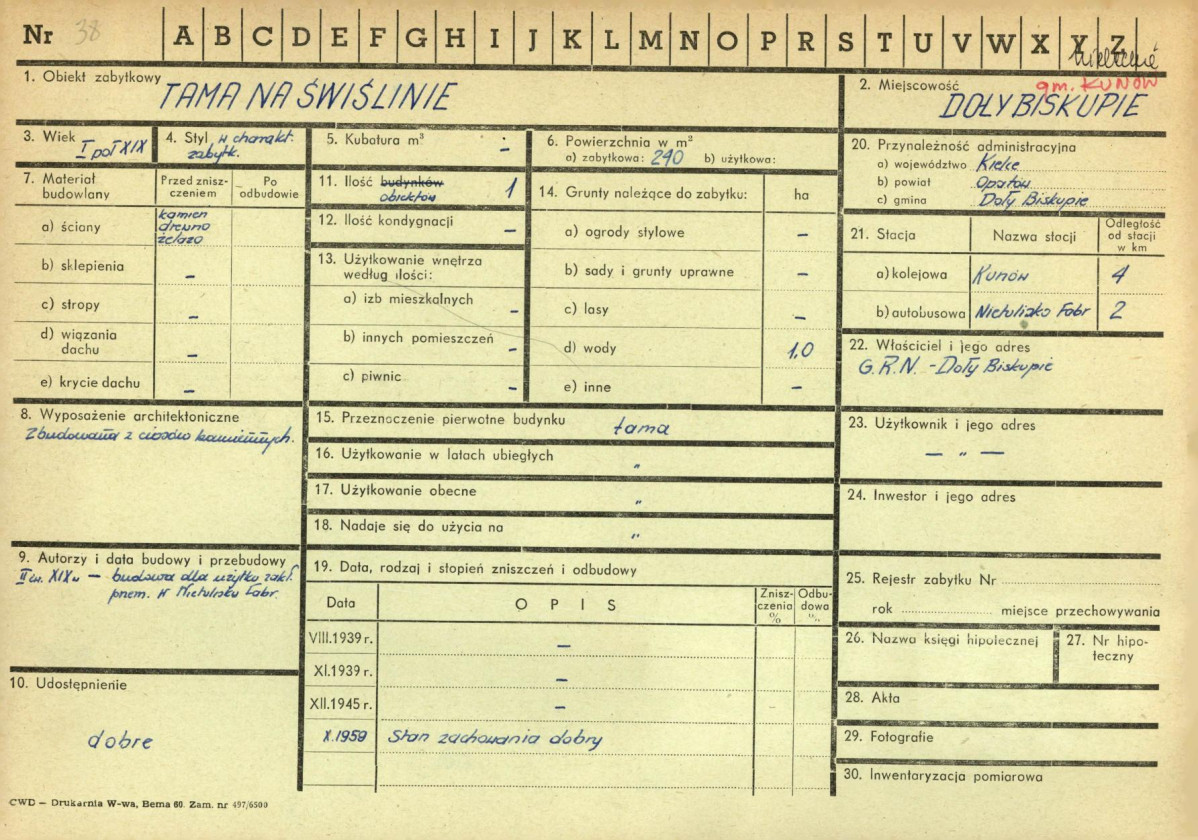 Nr 38 A B C D E F G H I J K L M N O P R S T U V W X Y Z
1. Obiekt zabytkowy
TAMA NA ŚWIŚLINIE
2. Miejscowość
gm. KUNÓW
DOŁY BISKUPIE
3. Wiek
I poł XIX
4. Styl w charakt.
zabytk.
5. Kubatura m³ —
6. Powierzchnia w m²
a) zabytkowa: 240 b) użytkowa:
7. Materiał
budowlany
Przed znisz-
czeniem
Po
odbudowie
a) ściany
kamien
drewno
żelazo
b) sklepienia —
c) stropy —
d) wiązania
dachu —
e) krycie dachu —
8. Wyposażenie architektoniczne
Zbudowana z ciosów kamiennych.
9. Autorzy i data budowy i przebudowy
II ćw. XIX w — budowa dla użytku zakł.
przem. w Nietulisku Fabr.
10. Udostępnienie
dobre
11. Ilość budynków 1
obiektów
12. Ilość kondygnacji —
13. Użytkowanie wnętrza
według ilości:
a) izb mieszkalnych —
b) innych pomieszczeń —
c) piwnic —
14. Grunty należące do zabytku: ha
a) ogrody stylowe —
b) sady i grunty uprawne —
c) lasy —
d) wody 1,0
e) inne —
15. Przeznaczenie pierwotne budynku tama
16. Użytkowanie w latach ubiegłych "
17. Użytkowanie obecne "
18. Nadaje się do użycia na "
19. Data, rodzaj i stopień zniszczeń i odbudowy
Data OPIS Znisz-
czenia
% Odbu-
dowa
%
VIII.1939 r. —
XI.1939 r. —
XII.1945 r. —
X.1959 Stan zachowania dobry
20. Przynależność administracyjna
a) województwo Kielce
b) powiat Opatów
c) gmina Doły Biskupie
21. Stacja Nazwa stacji Odległość
od stacji
w km
a) kolejowa Kunów 4
b) autobusowa Nietulisko Fabr 2
22. Właściciel i jego adres
G.R.N. - Doły Biskupie
23. Użytkownik i jego adres
— " —
24. Inwestor i jego adres
25. Rejestr zabytku Nr
rok miejsce przechowywania
26. Nazwa księgi hipotecznej
27. Nr hipo-
teczny
28. Akta
29. Fotografie
30. Inwentaryzacja pomiarowa
CWD — Drukarnia W-wa, Bema 60. Zam. nr 497/6500